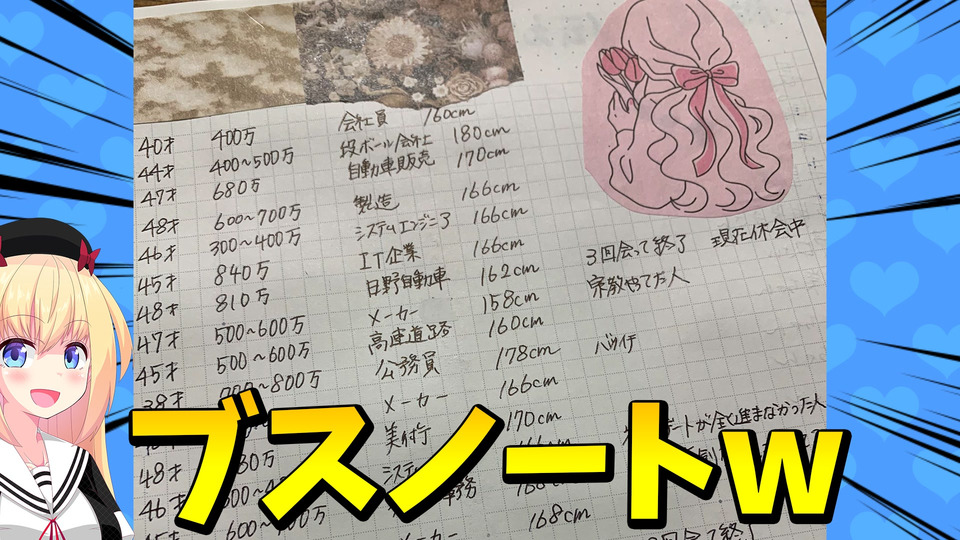 40才 400万 会社員 160cm
44才 400~500万 段ボール会社 180cm
47才 680万 自動車販売 170cm
48才 600~700万 製造 166cm
46才 300~400万 システムエンジニア 166cm
45才 840万 IT企業 166cm 3回会って終了 現在休会中
48才 810万 日野自動車 162cm 宗教やってた人
47才 500~600万 メーカー 158cm
45才 500~600万 高速道路 160cm
38才 ~800万 公務員 178cm バツイチ
メーカー 166cm
48才 170cm 進まなかった人
46才 システム
45才 600~
メーカー 168cm
ブスノートw